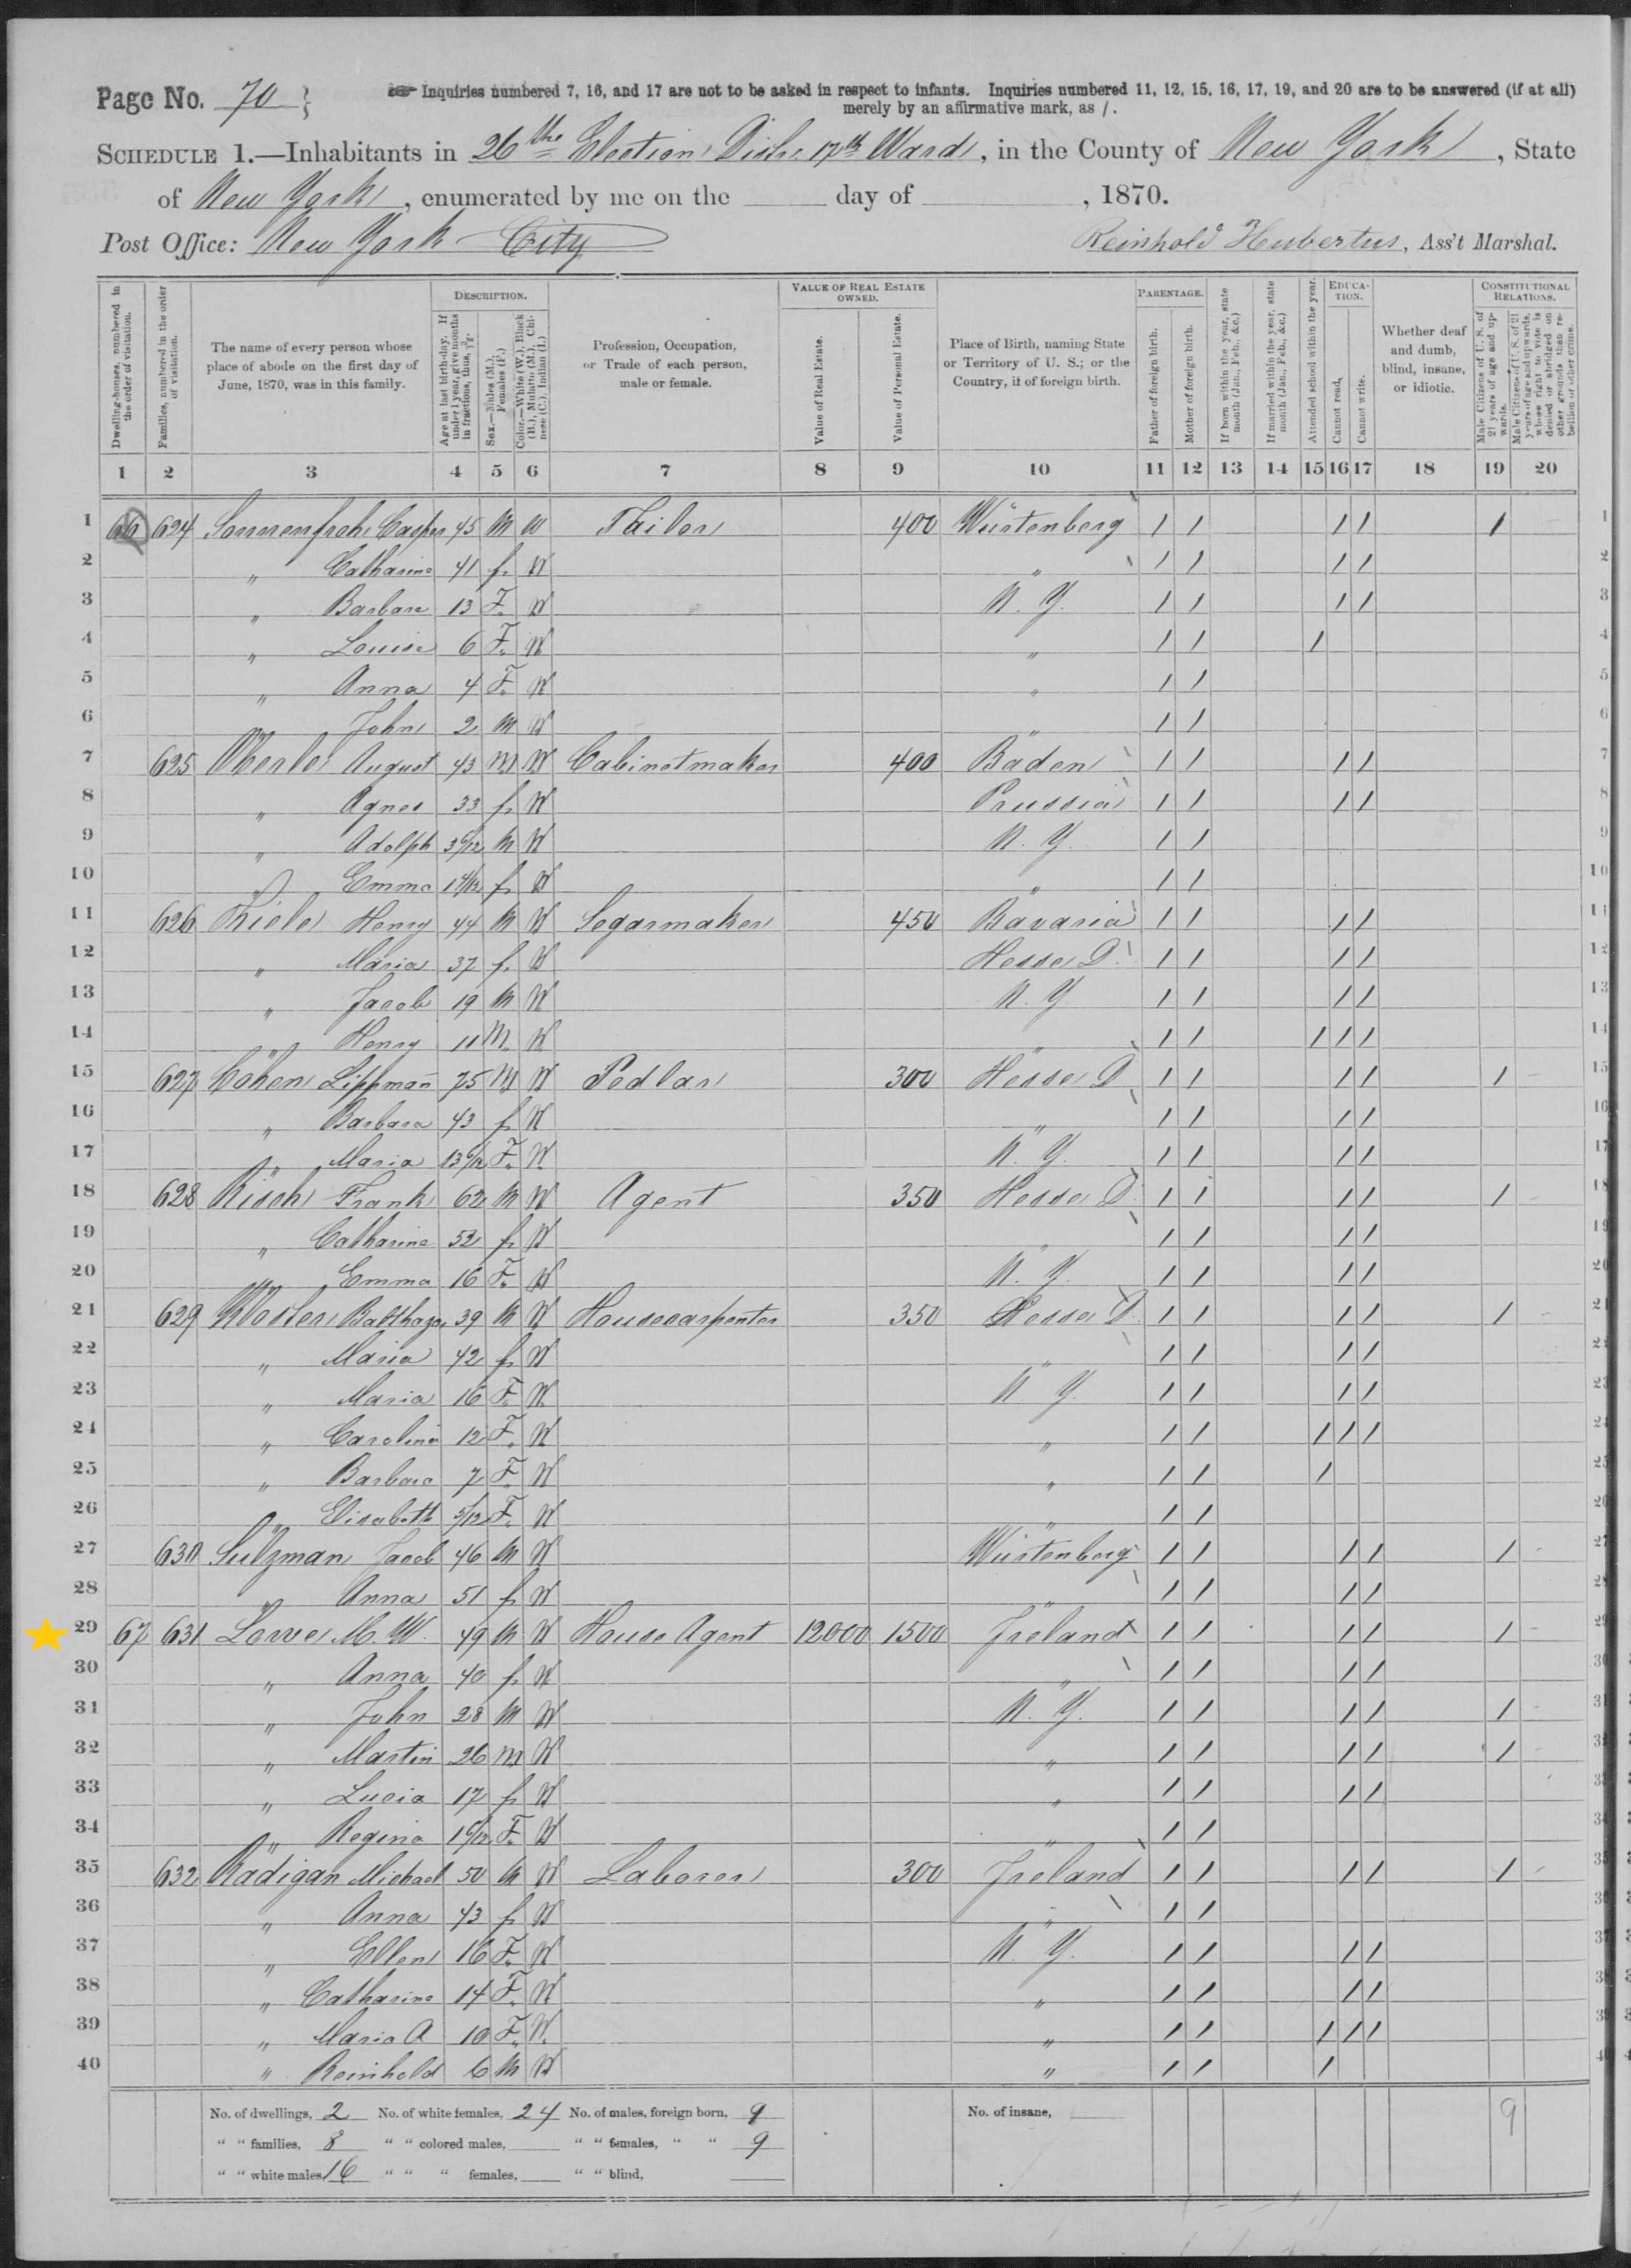 Page No. 70
Inquiries numbered 7, 16, and 17 are not to be asked in respect to infants. Inquiries numbered 11, 12, 15, 16, 17, 19, and 20 are to be answered (if at all)
merely by an affirmative mark, as /.
SCHEDULE 1.—Inhabitants in 26the Election Distr. 17th Ward, in the County of New York, State
of New York, enumerated by me on the day of , 1870.
Post Office: New York City Reinhold Hubertus, Ass't Marshal.
Dwelling-houses, numbered in the order of visitation.
Families, numbered in the order of visitation.
The name of every person whose place of abode on the first day of June, 1870, was in this family.
DESCRIPTION.
Age at last birth-day. If under 1 year, give months in fractions, thus,
Sex.—Males (M.), Females (F.)
Color.—White (W.), Black (B.), Mulatto (M.), Chinese (C.), Indian (I.)
Profession, Occupation, or Trade of each person, male or female.
VALUE OF REAL ESTATE OWNED.
Value of Real Estate.
Value of Personal Estate.
Place of Birth, naming State or Territory of U. S.; or the Country, if of foreign birth.
PARENTAGE.
Father of foreign birth.
Mother of foreign birth.
If born within the year, state month (Jan., Feb., &c.)
If married within the year, state month (Jan., Feb., &c.)
Attended school within the year.
EDUCATION.
Cannot read.
Cannot write.
Whether deaf and dumb, blind, insane, or idiotic.
CONSTITUTIONAL RELATIONS.
Male Citizens of U. S. of 21 years of age and upwards.
Male Citizens of U. S. of 21 years of age and upwards, whose right to vote is denied or abridged on other grounds than rebellion or other crime.
1 2 3 4 5 6 7 8 9 10 11 12 13 14 15 16 17 18 19 20
1 66 624 Casper 45 M W Tailor 400 Würtenberg / / / / / 1
2 " Catharine 41 f. W " / / / / 2
3 " Barbara 13 F. W N. Y. / / / / 3
4 " Louise 6 F. W " / / / 4
5 " Anna 4 F. W " / / 5
6 " John 2 M W " / / 6
7 625 Oberle August 43 M W Cabinetmaker 400 Baden / / / / 7
8 " Agnes 33 f. W Prussia / / / / 8
9 " Adolph M W N. Y. / / 9
10 " Emma f. W " / / 10
11 626 Henry 44 M W Segarmaker 450 Bavaria / / / / 11
12 " Maria 37 f. W Hesse D. / / / / 12
13 " Jacob 19 M W N. Y / / / / 13
14 " Henry 11 M. W " / / / / / 14
15 627 Cohen Lippman 75 M W Pedlar 300 Hesse D / / / / / 15
16 " Barbara 43 f W " / / / / 16
17 " Maria F. W N. Y. / / / / 17
18 628 Risch Frank 62 M W Agent 350 Hesse D. / / / / / 18
19 " Catharine 52 f. W " / / / / 19
20 " Emma 16 F. W N. Y. / / / / 20
21 629 Balthazar 39 M W Housecarpenter 350 Hesse D. / / / / / 21
22 " Maria 42 f. W " / / / / 22
23 " Maria 16 F. W N. Y. / / / / 23
24 " Carolina 12 F. W " / / / / / 24
25 " Barbara 7 F. W " / / / 25
26 " Elisabeth 5/12 F. W " / / 26
27 630 Sulzman Jacob 46 M W Würtenberg / / / / / 27
28 " Anna 51 f. W " / / / / 28
29 67 631 Lowe M. W. 49 M W House Agent 12000 1500 Ireland / / / / / 29
30 " Anna 40 f. W " / / / / 30
31 " John 28 M W N. Y. / / / / / 31
32 " Martin 26 M W " / / / / / 32
33 " Lucia 17 f. W " / / / / 33
34 " Regina F. W " / / 34
35 632 Radigan Michael 50 M W Laborer 300 Ireland / / / / / 35
36 " Anna 43 f. W " / / 36
37 " Ellen 16 F. W N. Y. / / / / 37
38 " Catharine 14 F. W " / / / / 38
39 " Maria A 10 F. W. " / / / / / 39
40 " Reinhold 6 M W " / / / 40
No. of dwellings, 2 No. of white females, 24 No. of males, foreign born, 9 No. of insane, 9
" " families, 8 " " colored males, " " females, " " 9
" " white males 16 " " " females, " " blind,